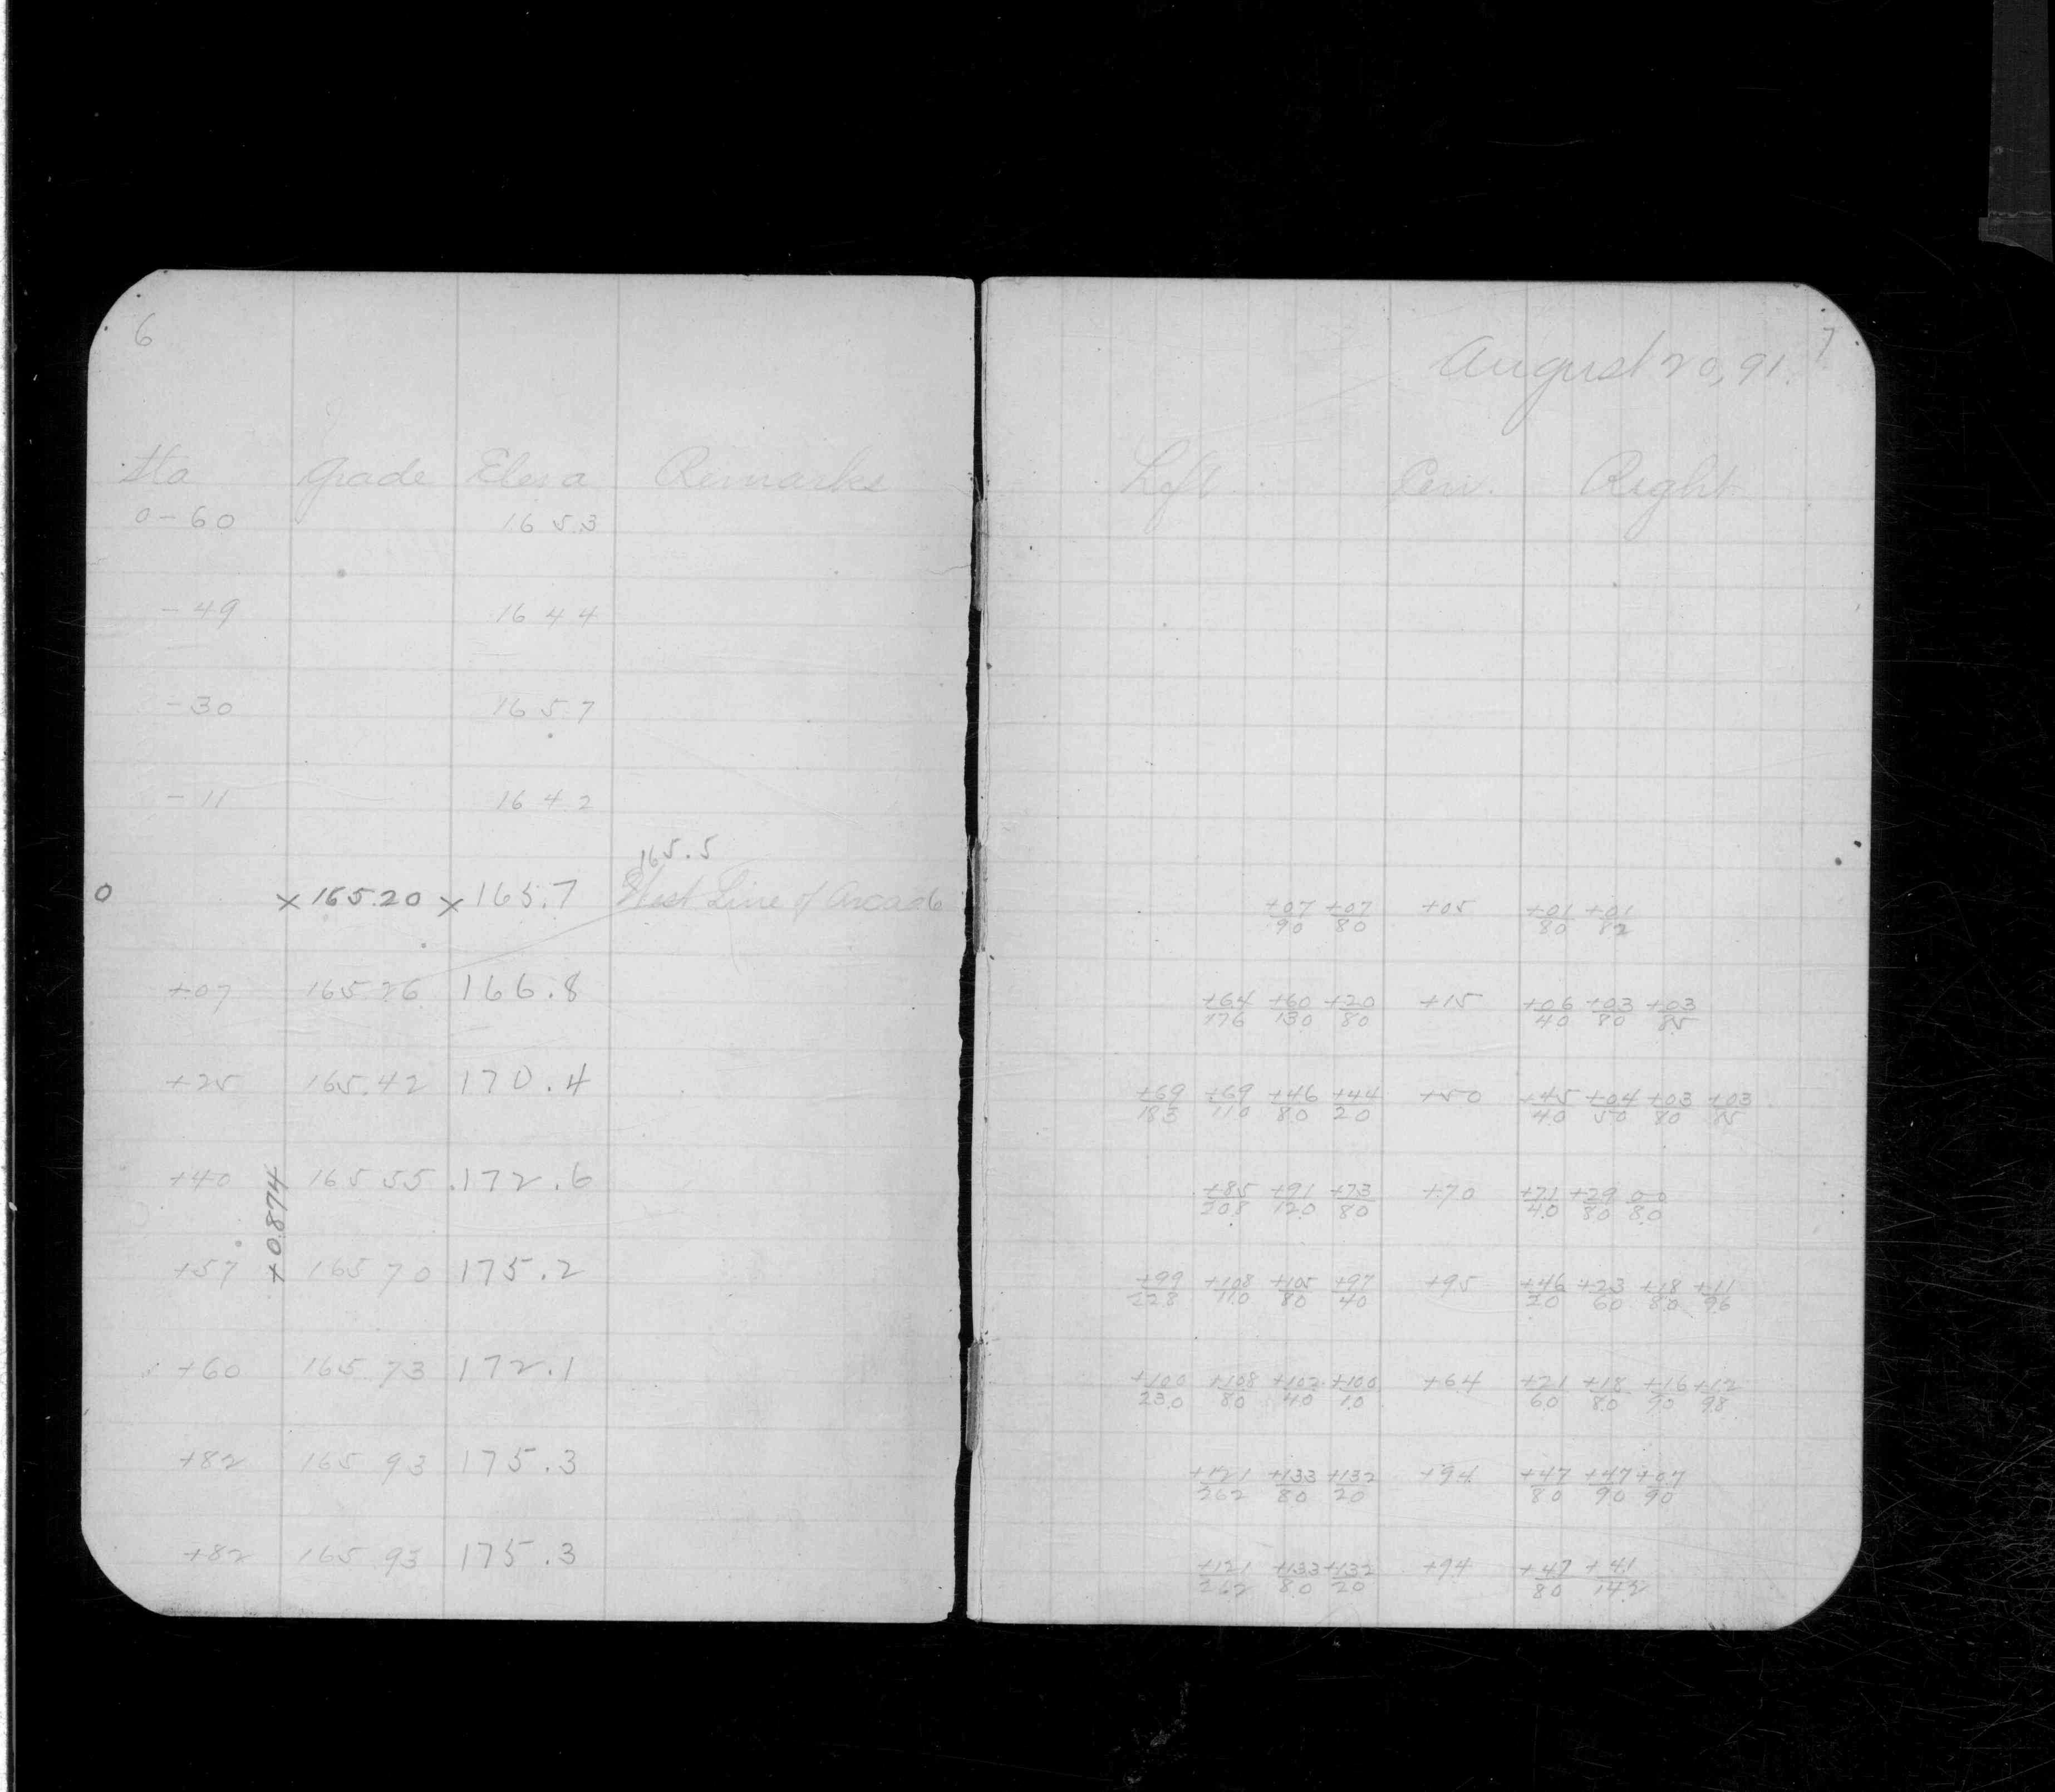 6
Sta Grade Eleva Remarks
0-60 165.3
-49 164.4
-30 165.7
-11 164.2
165.5
0 x 165.20 x 165.7 West Line of Arcade
+07 165.26 166.8
+25 165.42 170.4
+40 165.55 172.6
+0.874
+57 165.70 175.2
+60 165.73 172.1
+82 165.93 175.3
+82 165.93 175.3
7
August 20, 91.
Left Cen. Right
+07/90 +07/80 +05 +01/80 +01/82
+64/176 +60/130 +20/80 +15 +06/40 +03/80 +03/85
+69/183 +69/110 +46/80 +44/20 +50 +45/40 +04/50 +03/80 +03/85
+85/208 +91/120 +73/80 +70 +71/40 +29/80 00/80
+99/228 +108/110 +105/80 +97/40 +95 +46/20 +23/60 +18/80 +11/96
+100/230 +108/80 +102/40 +100/10 +64 +21/60 +18/80 +16/90 +12/98
+121/262 +133/80 +132/20 +94 +47/80 +47/90 +07/90
+121/262 +133/80 +132/20 +94 +47/80 +41/142